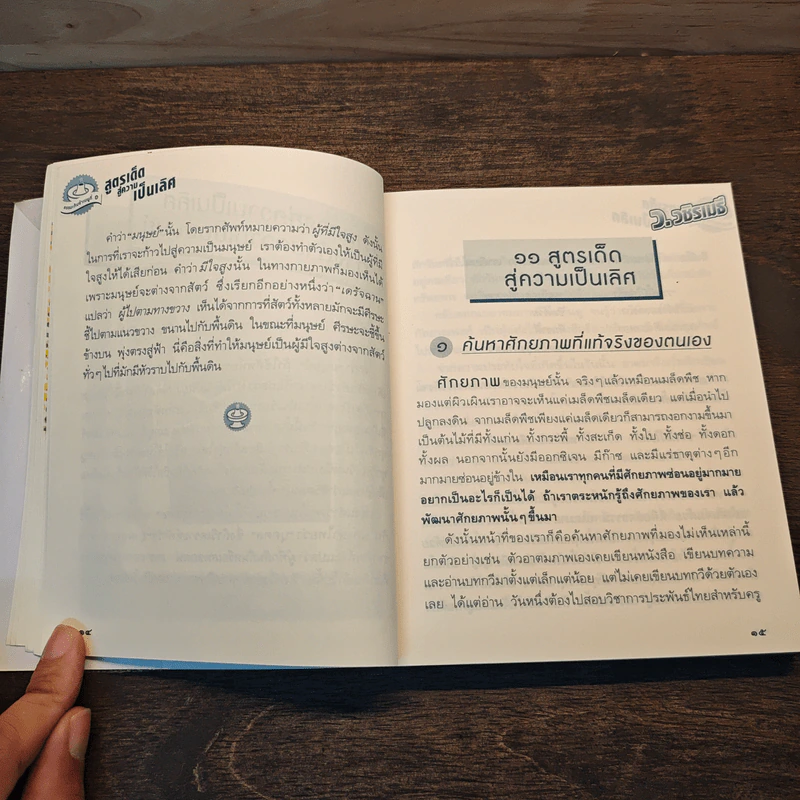 สูตรเด็ด
สู่ความ
เป็นเลิศ
คำว่า“มนุษย์”นั้น โดยรากศัพท์หมายความว่า ผู้ที่มีใจสูง ดังนั้น
ในการที่เราจะก้าวไปสู่ความเป็นมนุษย์ เราต้องทำตัวเองให้เป็นผู้ที่มี
ใจสูงให้ได้เสียก่อน คำว่า มีใจสูงนั้น ในทางกายภาพก็มองเห็นได้
เพราะมนุษย์จะต่างจากสัตว์ ซึ่งเรียกอีกอย่างหนึ่งว่า“เดรัจฉาน”
แปลว่า ผู้ไปตามทางขวาง เห็นได้จากการที่สัตว์ทั้งหลายมักจะมีศีรษะ
ชี้ไปตามแนวขวาง ขนานไปกับพื้นดิน ในขณะที่มนุษย์ ศีรษะจะชี้ขึ้น
ข้างบน พุ่งตรงสู่ฟ้า นี่คือสิ่งที่ทำให้มนุษย์เป็นผู้มีใจสูงต่างจากสัตว์
ทั่วๆไปที่มักมีหัวราบไปกับพื้นดิน
๑๔
ว.วชิรเมธี
๑๑ สูตรเด็ด
สู่ความเป็นเลิศ
๑ ค้นหาศักยภาพที่แท้จริงของตนเอง
ศักยภาพของมนุษย์นั้น จริงๆแล้วเหมือนเมล็ดพืช หาก
มองแต่ผิวเผินเราอาจจะเห็นแค่เมล็ดพืชเมล็ดเดียว แต่เมื่อนำไป
ปลูกลงดิน จากเมล็ดพืชเพียงแค่เมล็ดเดียวก็สามารถงอกงามขึ้นมา
เป็นต้นไม้ที่มีทั้งแก่น ทั้งกระพี้ ทั้งสะเก็ด ทั้งใบ ทั้งช่อ ทั้งดอก
ทั้งผล นอกจากนั้นยังมีออกซิเจน มีก๊าซ และมีแร่ธาตุต่างๆอีก
มากมายซ่อนอยู่ข้างใน เหมือนเราทุกคนที่มีศักยภาพซ่อนอยู่มากมาย
อยากเป็นอะไรก็เป็นได้ ถ้าเราตระหนักรู้ถึงศักยภาพของเรา แล้ว
พัฒนาศักยภาพนั้นๆขึ้นมา
ดังนั้นหน้าที่ของเราก็คือค้นหาศักยภาพที่มองไม่เห็นเหล่านี้
ยกตัวอย่างเช่น ตัวอาตมภาพเองเคยเขียนหนังสือ เขียนบทความ
และอ่านบทกวีมาตั้งแต่เล็กแต่น้อย แต่ไม่เคยเขียนบทกวีด้วยตัวเอง
เลย ได้แต่อ่าน วันหนึ่งต้องไปสอบวิชาการประพันธ์ไทยสำหรับครู
๑๕